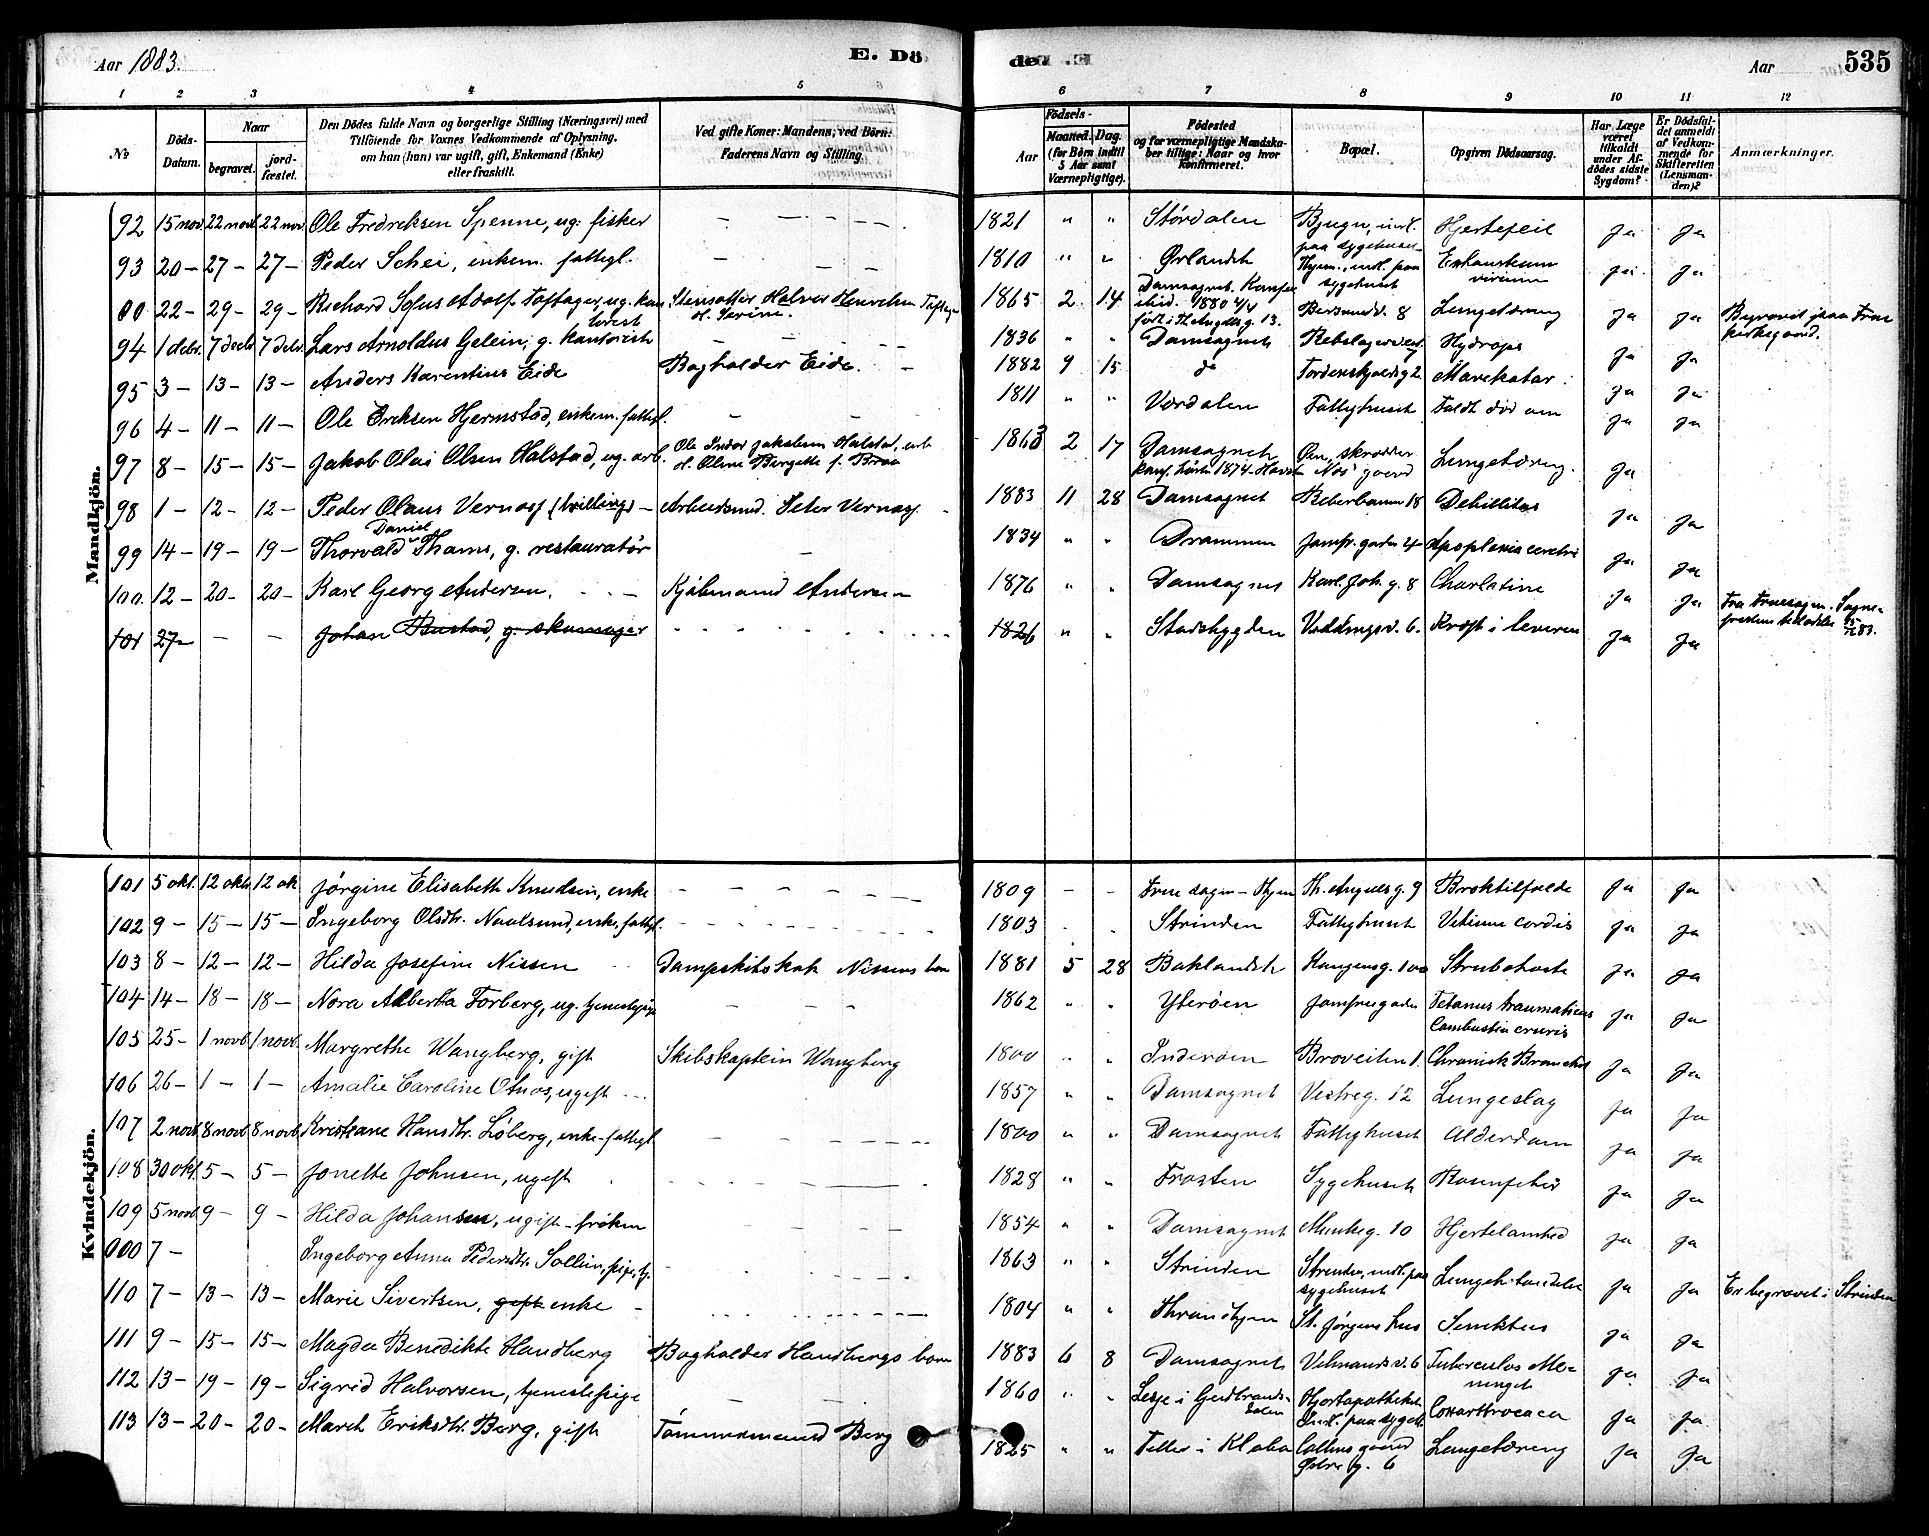 Aar 1883.
E. Dö
de. E.
Aar
535
1 2 3 4 5
6 7 8 9 10 11 12
№
Döds-Datum.
Naar
begravet.
jord-fæstet.
Den Dödes fulde Navn og borgerlige Stilling (Næringsvei) med
Tilföiende for Voxnes Vedkommende af Oplysning,
om han (hun) var ugift, gift, Enkemand (Enke)
eller fraskilt.
Ved gifte Koner: Mandens; ved Börn:
Faderens Navn og Stilling.
Födsels-
Aar
Maaned. Dag.
(for Börn indtil
5 Aar samt
Værnepligtige).
Födested
og for værnepligtige Mandska-
ber tillige: Naar og hvor
konfirmeret.
Bopæl.
Opgiven Dödsaarsag.
Har Læge
været
tilkaldt
under Af-
dödes sidste
Sygdom?
Er Dödsfal-
det anmeldt
af Vedkom-
mende for
Skifteretten
(Lensman-
den)?
Anmærkninger.
Mandkjön.
92 15 nov. 22 novb 22 nov. Ole Fredriksen Spenne, ug. fisker — — — — 1821 " " Stördalen Bjugn, indl. paa sygehuset Hjertefeil Ja Ja
93 20 — 27 — 27 — Peder Schei, enkem. fattigl. — — — 1810 " " Ørlandet Thjem., indl. paa sygehuset Exhaustium virium Ja Ja
00 22 — 29 — 29 — Richard Sofus Adolf Toftager, ug. Halver 1865 2 14 Domsognet. 1880 4/4 födt i Th. Angells g. 13. 8 Lungetæring Ja Ja
94 1 decbr. 7 decbr 7 debr. Lars Arnoldus Gelein, g. kantorist — — — 1836 " " Domsognet Hydrops Ja Ja
95 3 — 13 — 13 — Anders Karentius Eide Bogholder Eide. — 1882 9 15 do Tordenskjoldsg 2 Mavekatar Ja Ja
96 4 — 11 — 11 — Ole Eriksen Hjermstad, enkem. fattigl. — — 1811 " " Værdalen Fattighuset Faldt død om Ja Ja
97 8 — 15 — 15 — Jakob Olai Olsen Halstad, ug. arb. Ole Jakobsen Halstad, arb. 1863 2 17 Domsognet 1874 Lungetæring. Ja
98 1 — 12 — 12 — Peder Olaus Vernøy (tvilling) — Arbeidsmd. Peter Vernøy 1883 11 28 Domsognet Reberbanen 18 Debilitas Ja Ja
99 14 — 19 — 19 — Thorvald Daniel Thams, g. restauratør — 1834 " " Drammen Jomfr. gaden 4 Apoplexia cerebri Ja Ja
100. 12 — 20 — 20 — Karl Georg Andersen. — Kjøbmand Andersen 1876 " " Domsognet Karl Joh. g. 8 Skarlatine Ja Ja
101 27 — — — Johan Bustad, g. skomager 1826 " " Stadsbygden 6. Kræft i leveren Ja Ja Fra Fruesogn. 83.
Kvindekjön.
101 5 okt. 12 okt. 12 ok Jørgine Elisabeth Knudsen, enke — — — — 1809 — — Frue sogn — Thjem Th. Angells g. 9 Broktilfælde Ja Ja
102 9 — 15 — 15 — Ingeborg Olsdtr. Naalsund, enke, fattigl. 1803 Strinden Fattighuset Vitium cordis Ja Ja
103 8 — 12 — 12 — Hilda Josefine Nissen Dampskibskok Nissens barn 1881 5 28 Baklandet Kongensg. 100 Strubehoste Ja Ja
104 14 — 18 — 18 — Nora Alberta Forberg, ug. tjenestepige — — 1862 " " Yterøen Jomfrugaden Tetanus traumaticus Combustio cruris Ja Ja
105 25 — 1 novb. 1 novb. Margrethe Wangberg, gift Skibskaptein Wangberg 1800 " " Inderøen Broveiten 1. Chronisk Bronchit Ja Ja
106 26 — 1 — 1 — Amalie Caroline Otnes, ugift 1857 " " Domsognet Vestreg. 12 Lungeslag Ja Ja
107 2 novb. 8 novb. 8 novb. Kristiane Hansdtr. Løberg, enke-fattigl. — 1800 " " Domsognet Fattighuset Alderdom Ja Ja
108 30 okt. 5 — 5 — Jonette Johnsen, ugift 1828 " " Frosten Sygehuset Rosenfeber Ja Ja
109 5 novb. 9 — 9 — Hilda Johansen, ugift — frøken 1854 " " Domsognet Munkeg. 10 Hjertelamhed Ja Ja
000 7 — Ingeborg Anna Pedersdtr. Sollien, pige, tj. 1863 " " Strinden Strinden, indl. paa sygehuset Lungebetændelse Ja Ja Er begravet i Strinden
110 7 — 13 — 13 — Marie Sivertsen, gift enke — 1804 " " Throndhjem St. Jørgens hus Senectus Ja Ja
111 9 — 15 — 15 — Magda Benedikte Handberg Bogholder Handbergs barn 1883 6 8 Domsognet 6 Tuberculos Meninget Ja Ja
112 13 — 19 — 19 — Sigrid Halvorsen, tjenestepige — — 1860 " " Lesje i Gudbrandsdalen Hjorteapotheket Indl. paa sygeh. Ja Ja
113 13 — 20 — 20 — Marit Eriksdtr. Berg, gift Tømmermand Berg 1825 " " Tiller i Klæbo gaard g. 6 Lungetæring Ja Ja